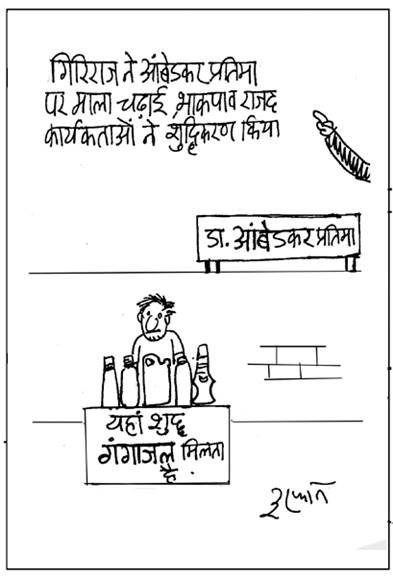 गिरिराज ने आंबेडकर प्रतिमा
पर माला चढ़ाई, भाकपा व राजद
कार्यकर्ताओं ने शुद्धिकरण किया
डा. आंबेडकर प्रतिमा
यहां शुद्ध
गंगाजल मिलता
है.